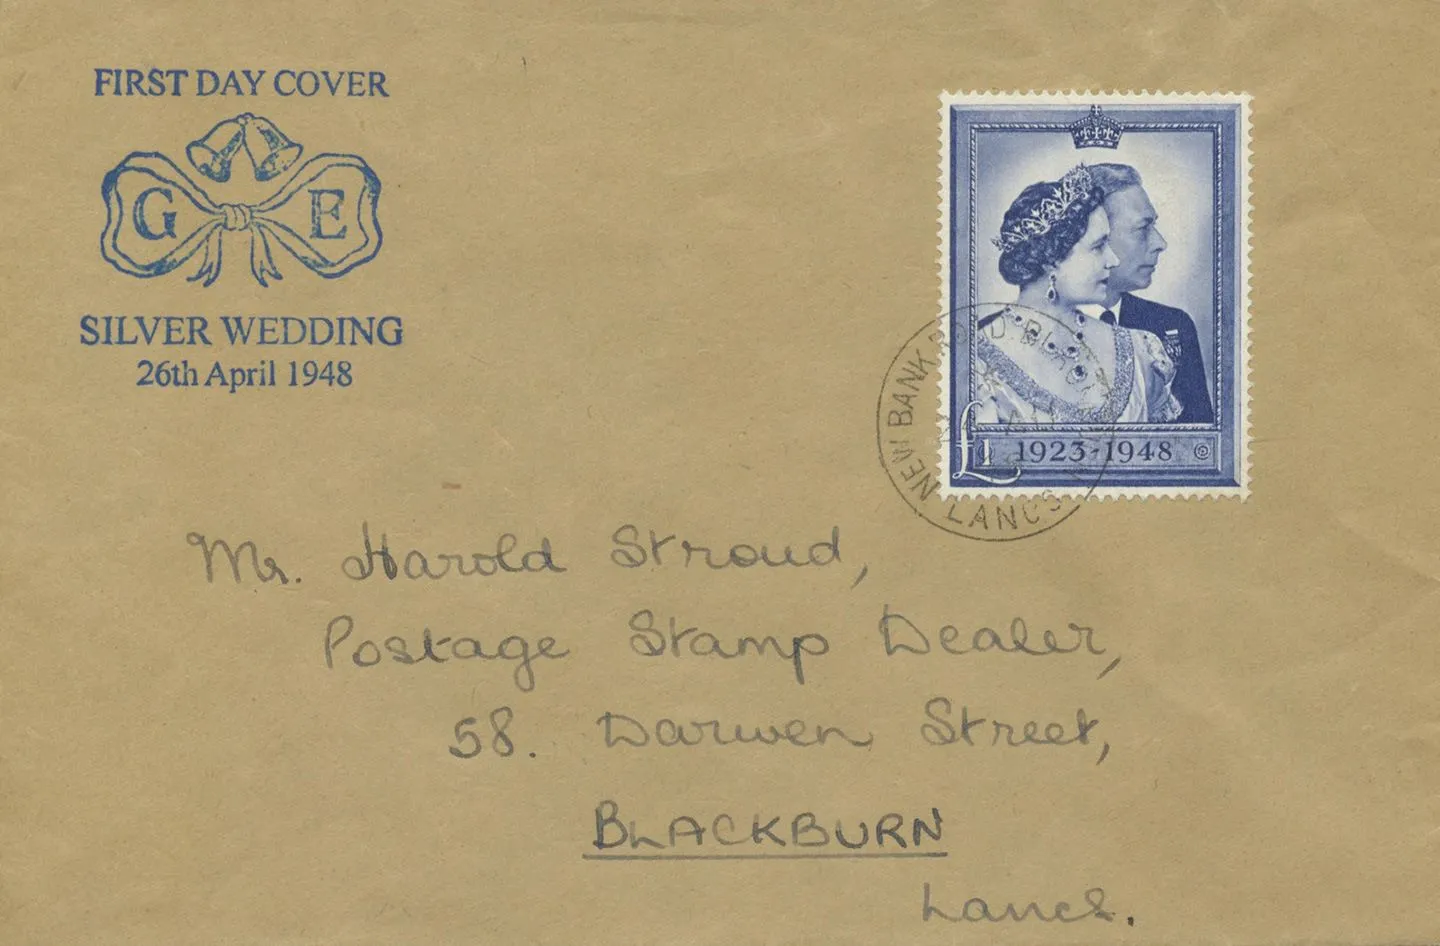 FIRST DAY COVER
G E
SILVER WEDDING
26th April 1948
£1 1923-1948
NEW BANK ROAD. BLACKBURN
LANCS
Mr. Harold Stroud,
Postage Stamp Dealer,
58. Darwen Street,
BLACKBURN
Lancs.